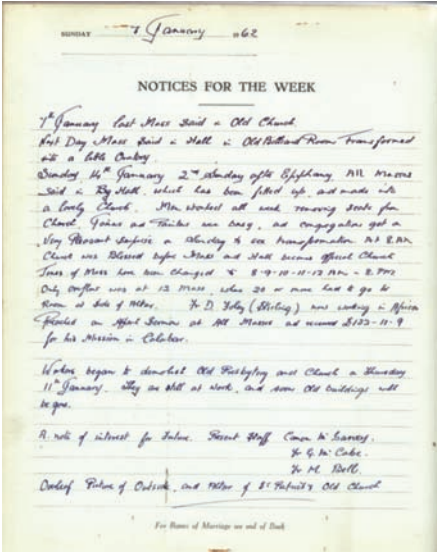 SUNDAY 7 January 1962
NOTICES FOR THE WEEK
7th January last Mass Said in Old Church.
Next Day Mass Said in Hall in Old Billiard Room Transformed
into a little Oratory.
Sunday 14th January 2nd Sunday after Epiphany. All Masses
Said in Big Hall, which has been fitted up, and made into
a lovely Church. Men worked all week removing Seats from
Church, and Congregations got a
Very Pleasant Surprise on Sunday to see transformation. At 8 AM
Church was Blessed before Mass and Hall became Official Church
Times of Mass have been changed to 8-9-10-11-12 AM - 8 PM
Only overflow was at 12 Mass, when 20 or more had to go to
Room at Side of Altar. Fr D. Foley (Stirling) now working in Africa
Preached an Appeal Sermon at All Masses and received £122-11-9
for his Mission in Calabar.
Workers began to demolish Old Presbytery and Church on Thursday
11th January. They are still at work, and soon Old buildings will
be gone.
A note of interest for Future. Present Staff Canon
Fr G. McCabe.
Fr M. Bell.
Overleaf Picture of Outside, and Altar of St Patrick's Old Church
For Banns of Marriage see end of Book